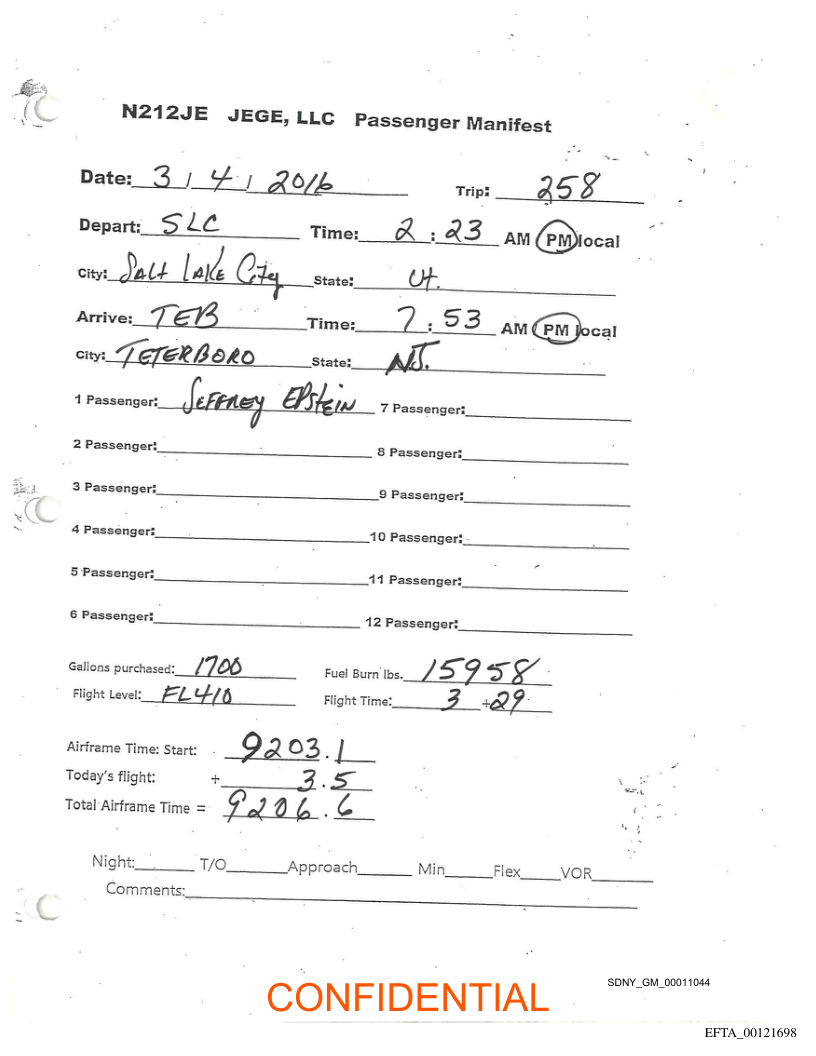 N212JE JEGE, LLC Passenger Manifest
Date: 3 / 4 / 2016 Trip: 258
Depart: SLC Time: 2 : 23 AM PM local
City: SALT LAKE CITY State: UT.
Arrive: TEB Time: 7 : 53 AM PM local
City: TETERBORO State: NJ.
1 Passenger: JEFFREY EPSTEIN 7 Passenger:
2 Passenger: 8 Passenger:
3 Passenger: 9 Passenger:
4 Passenger: 10 Passenger:
5 Passenger: 11 Passenger:
6 Passenger: 12 Passenger:
Gallons purchased: 1700 Fuel Burn lbs. 15958
Flight Level: FL410 Flight Time: 3 + 29
Airframe Time: Start: 9203.1
Today's flight: + 3.5
Total Airframe Time = 9206.6
Night: T/O Approach Min Flex VOR
Comments:
SDNY_GM_00011044
CONFIDENTIAL
EFTA_00121698